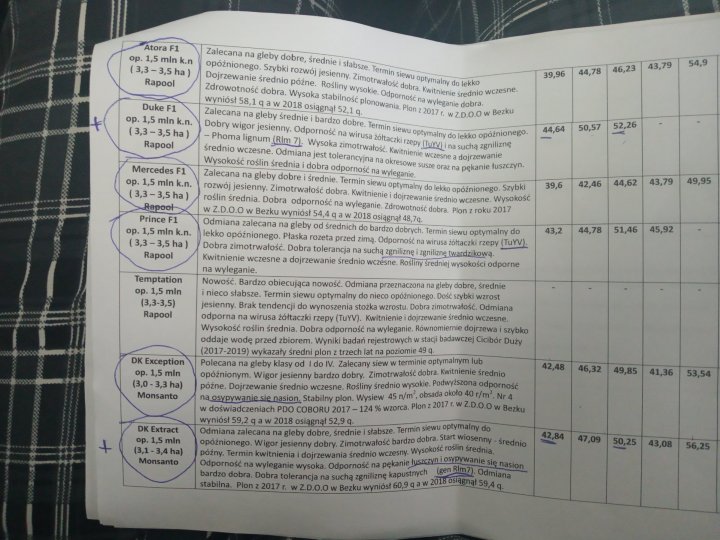 Atora F1
op. 1,5 mln k.n
( 3,3 – 3,5 ha )
Rapool
Zalecana na gleby dobre, średnie i słabsze. Termin siewu optymalny do lekko
opóźnionego. Szybki rozwój jesienny. Zimotrwałość dobra. Kwitnienie średnio wczesne.
Dojrzewanie średnio późne. Rośliny wysokie. Odporność na wyleganie dobra.
Zdrowotność dobra. Wysoka stabilność plonowania. Plon z 2017 r. w Z.D.O.O w Bezku
wyniósł 58,1 q a w 2018 osiągnął 52,1 q.
39,96 44,78 46,23 43,79 54,9
+
Duke F1
op. 1,5 mln k.n.
( 3,3 – 3,5 ha )
Rapool
Zalecana na gleby średnie i bardzo dobre. Termin siewu optymalny do lekko opóźnionego.
Dobry wigor jesienny. Odporność na wirusa żółtaczki rzepy (TuYV) i na suchą zgniliznę
– Phoma lignum (Rlm 7). Wysoka zimotrwałość. Kwitnienie wczesne a dojrzewanie
średnio wczesne. Odmiana jest tolerancyjna na okresowe susze oraz na pękanie łuszczyn.
Wysokość roślin średnia i dobra odporność na wyleganie.
44,64 50,57 52,26 - -
Mercedes F1
op. 1,5 mln k.n.
( 3,3 – 3,5 ha )
Rapool
Zalecana na gleby dobre i średnie. Termin siewu optymalny do lekko opóźnionego. Szybki
rozwój jesienny. Zimotrwałość dobra. Kwitnienie i dojrzewanie średnio wczesne. Wysokość
roślin średnia. Dobra odporność na wyleganie. Zdrowotność dobra. Plon z roku 2017
w Z.D.O.O w Bezku wyniósł 54,4 q a w 2018 osiągnął 48,7q.
39,6 42,46 44,62 43,79 49,95
Prince F1
op. 1,5 mln k.n.
( 3,3 – 3,5 ha )
Rapool
Odmiana zalecana na gleby od średnich do bardzo dobrych. Termin siewu optymalny do
lekko opóźnionego. Płaska rozeta przed zimą. Odporność na wirusa żółtaczki rzepy (TuYV).
Dobra zimotrwałość. Dobra tolerancja na suchą zgniliznę i zgniliznę twardzikową.
Kwitnienie wczesne a dojrzewanie średnio wczesne. Rośliny średniej wysokości odporne
na wyleganie.
43,2 44,78 51,46 45,92 -
Temptation
op. 1,5 mln
(3,3-3,5)
Rapool
Nowość. Bardzo obiecująca nowość. Odmiana przeznaczona na gleby dobre, średnie
i nieco słabsze. Termin siewu optymalny do nieco opóźnionego. Dość szybki wzrost
jesienny. Brak tendencji do wynoszenia stożka wzrostu. Dobra zimotrwałość. Odmiana
odporna na wirusa żółtaczki rzepy (TuYV). Kwitnienie i dojrzewanie średnio wczesne.
Wysokość roślin średnia. Dobra odporność na wyleganie. Równomiernie dojrzewa i szybko
oddaje wodę przed zbiorem. Wyniki badań rejestrowych w stacji badawczej Cicibór Duży
(2017-2019) wykazały średni plon z trzech lat na poziomie 49 q.
- - - - -
DK Exception
op. 1,5 mln
(3,0 - 3,3 ha)
Monsanto
Polecana na gleby klasy od I do IV. Zalecany siew w terminie optymalnym lub
opóźnionym. Wigor jesienny bardzo dobry. Zimotrwałość dobra. Kwitnienie średnio
późne. Dojrzewanie średnio wczesne. Rośliny wysokie. Podwyższona odporność
na osypywanie się nasion. Stabilny plon. Wysiew 45 n/m², obsada około 40 r/m². Nr 4
w doświadczeniach PDO COBORU 2017 – 124 % wzorca. Plon z 2017 r. w Z.D.O.O w Bezku
wyniósł 59,2 q a w 2018 osiągnął 52,9 q.
42,48 46,32 49,85 41,36 53,54
+
DK Extract
op. 1,5 mln
(3,1 - 3,4 ha)
Monsanto
Odmiana zalecana na gleby dobre, średnie i słabsze. Termin siewu optymalny do
opóźnionego. Wigor jesienny dobry. Zimotrwałość bardzo dobra. Start wiosenny - średnio
późny. Termin kwitnienia i dojrzewania średnio wczesny. Wysokość roślin średnia.
Odporność na wyleganie wysoka. Odporność na pękanie łuszczyn i osypywanie się nasion
bardzo dobra. Dobra tolerancja na suchą zgniliznę kapustnych (gen Rlm7). Odmiana
stabilna. Plon z 2017 r. w Z.D.O.O w Bezku wyniósł 60,9 q a w 2018 osiągnął 59,4 q.
42,84 47,09 50,25 43,08 56,25